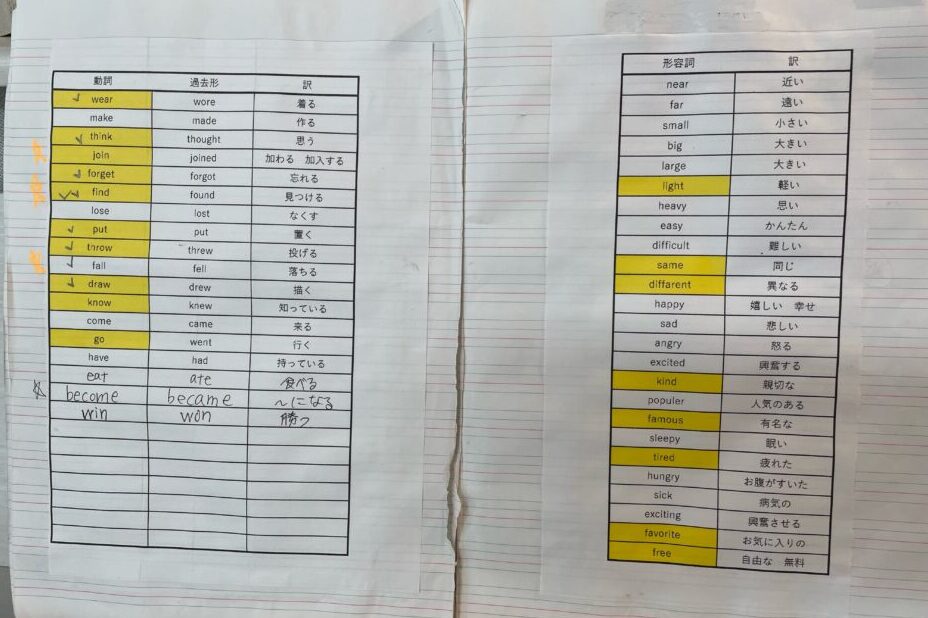 動詞 過去形 訳
wear wore 着る
make made 作る
think thought 思う
join joined 加わる 加入する
forget forgot 忘れる
find found 見つける
lose lost なくす
put put 置く
throw threw 投げる
fall fell 落ちる
draw drew 描く
know knew 知っている
come came 来る
go went 行く
have had 持っている
eat ate 食べる
become became 〜になる
win won 勝つ
形容詞 訳
near 近い
far 遠い
small 小さい
big 大きい
large 大きい
light 軽い
heavy 思い
easy かんたん
difficult 難しい
same 同じ
differant 異なる
happy 嬉しい 幸せ
sad 悲しい
angry 怒る
excited 興奮する
kind 親切な
populer 人気のある
famous 有名な
sleepy 眠い
tired 疲れた
hungry お腹がすいた
sick 病気の
exciting 興奮させる
favorite お気に入りの
free 自由な 無料